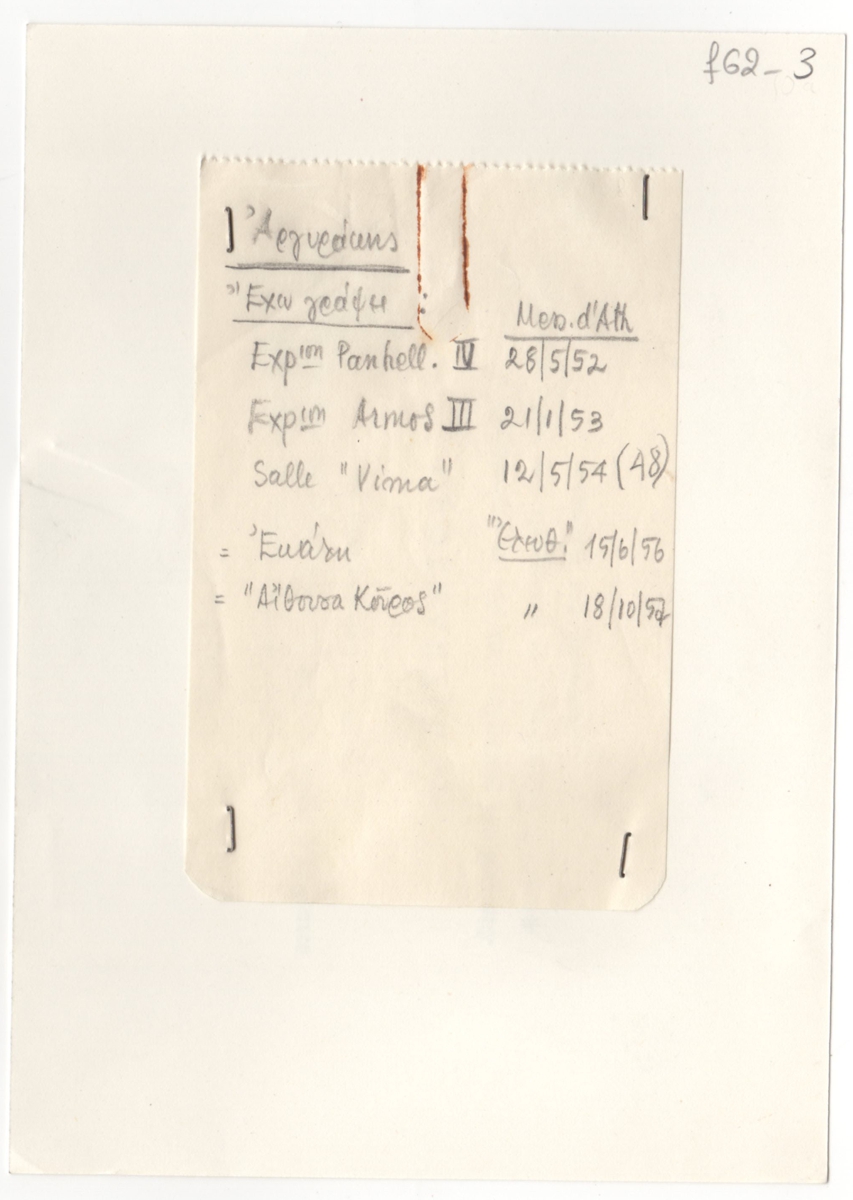 f62-3
Ἀργυράκης
Ἔχω γράψει :
Mess. d'Ath
Expion Panhell. IV 28/5/52
Expion Armos III 21/1/53
Salle "Vima" 12/5/54 (48)
= Ἑκάτη "Ἐλευθ." 15/6/56
= "Αἴθουσα Κοῦρος" " 18/10/57